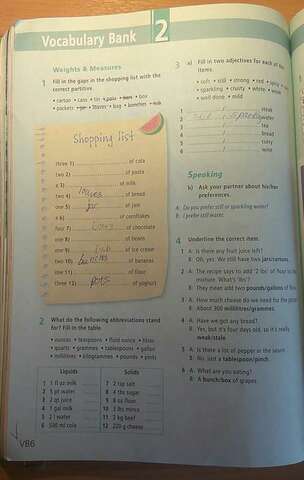 Vocabulary Bank 2
Weights & Measures
1 Fill in the gaps in the shopping list with the
correct partitive.
• carton • cans • tin • packets • box
• pockets • jar • loaves • bag • bunches
Shopping list
(three 1) of cola
(two 2) of pasta
(a 3) of milk
(two 4) loaves of bread
(one 5) jar of jam
a 6) of cornflakes
four 7) of chocolate
one 8) of beans
one 9) of ice cream
two 10) of bananas
one 11) of flour
(three 12) pots of yoghurt
2 What do the following abbreviations stand
for? Fill in the table.
• ounces • teaspoons • fluid ounce • litres
• quarts • grammes • tablespoons • gallon
• millilitres • kilogrammes • pounds • pints
Liquids Solids
1 1 fl oz milk 7 2 tsp salt
2 5 pt water 8 4 tbs sugar
3 2 qt juice 9 8 oz flour
4 1 gal milk 10 3 lbs mince
5 2 l water 11 2 kg beef
6 500 ml cola 12 220 g cheese
V86
3 a) Fill in two adjectives for each of the
items.
• soft • still • strong • red
• sparkling • crusty • white • weak
• well done • mild
1 steak
2 water
3 tea
4 bread
5 curry
6 wine
Speaking
b) Ask your partner about his/her
preferences.
A: Do you prefer still or sparkling water?
B: I prefer still water.
4 Underline the correct item.
1 A: Is there any fruit juice left?
B: Oh, yes. We still have two jars/cartons.
2 A: The recipe says to add '2 lbs' of flour to the
mixture. What's 'lbs'?
B: They mean add two pounds/gallons of flour.
3 A: How much cheese do we need for the
B: About 300 millilitres/grammes.
4 A: Have we got any bread?
B: Yes, but it's four days old, so it's really
weak/stale.
5 A: Is there a lot of pepper in the
B: No, just a tablespoon/pinch.
6 A: What are you eating?
B: A bunch/box of grapes.